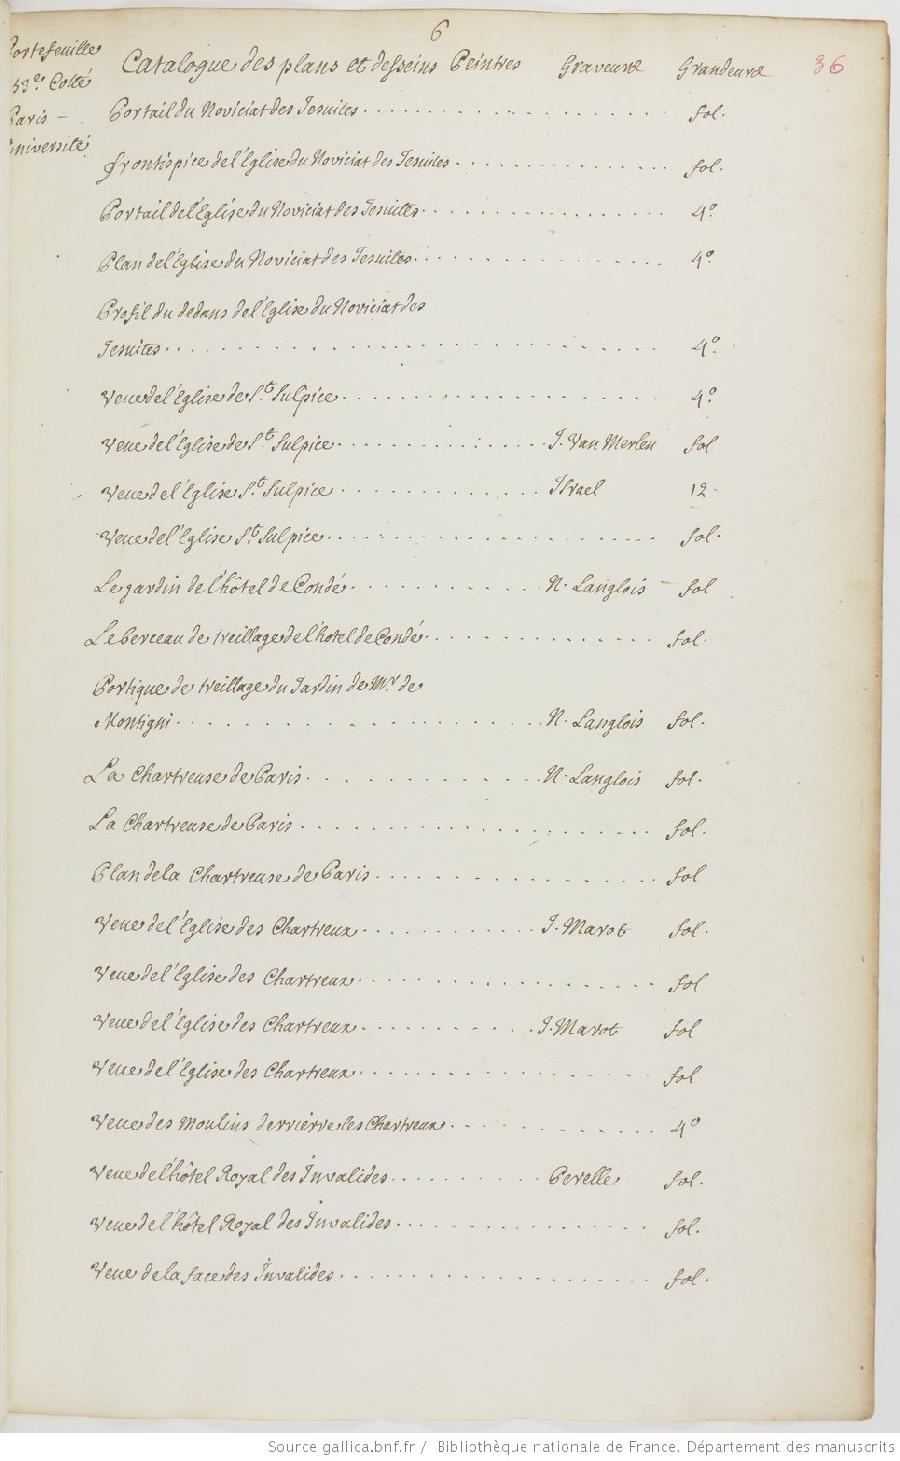 6
Portefeuille
53e. Cotté
Paris –
Université
Catalogue des plans et desseins Peintres Graveurs Grandeurs 36
Portail du Noviciat des Jesuites . . . fol.
frontispice de l'Eglise du Noviciat des Jesuites . . . fol.
Portail de l'Eglise du Noviciat des Jesuites . . . 4º
Plan de l'Eglise du Noviciat des Jesuites . . . 4º
Profil du dedans de l'Eglise du Noviciat des
Jesuites . . . 4º
Veue de l'Eglise de St. Sulpice . . . 4º
Veue de l'Eglise de St. Sulpice . . . J. Van Merlen fol
Veue de l'Eglise St. Sulpice . . . Israel 12
Veue de l'Eglise St. Sulpice . . . fol.
Le gardin de l'hôtel de Condé . . . N. Langlois – fol
Le berceau de treillage de l'hôtel de Condé . . . fol.
Portique de treillage du Jardin de Mr. de
Montigni . . . N. Langlois fol.
La Chartreuse de Paris . . . N. Langlois fol.
La Chartreuse de Paris . . . fol.
Plan de la Chartreuse de Paris . . . fol
Veue de l'Eglise des Chartreux . . . J. Marot fol.
Veue de l'Eglise des Chartreux . . . fol
Veue de l'Eglise des Chartreux . . . J. Marot fol
Veue de l'Eglise des Chartreux . . . fol
Veue des Moulins derrierre les Chartreux . . . 4º
Veue de l'hôtel Royal des Invalides . . . Perelle fol.
Veue de l'hôtel Royal des Invalides . . . fol.
Veue de la face des Invalides . . . fol.
Source gallica.bnf.fr / Bibliothèque nationale de France. Département des manuscrits